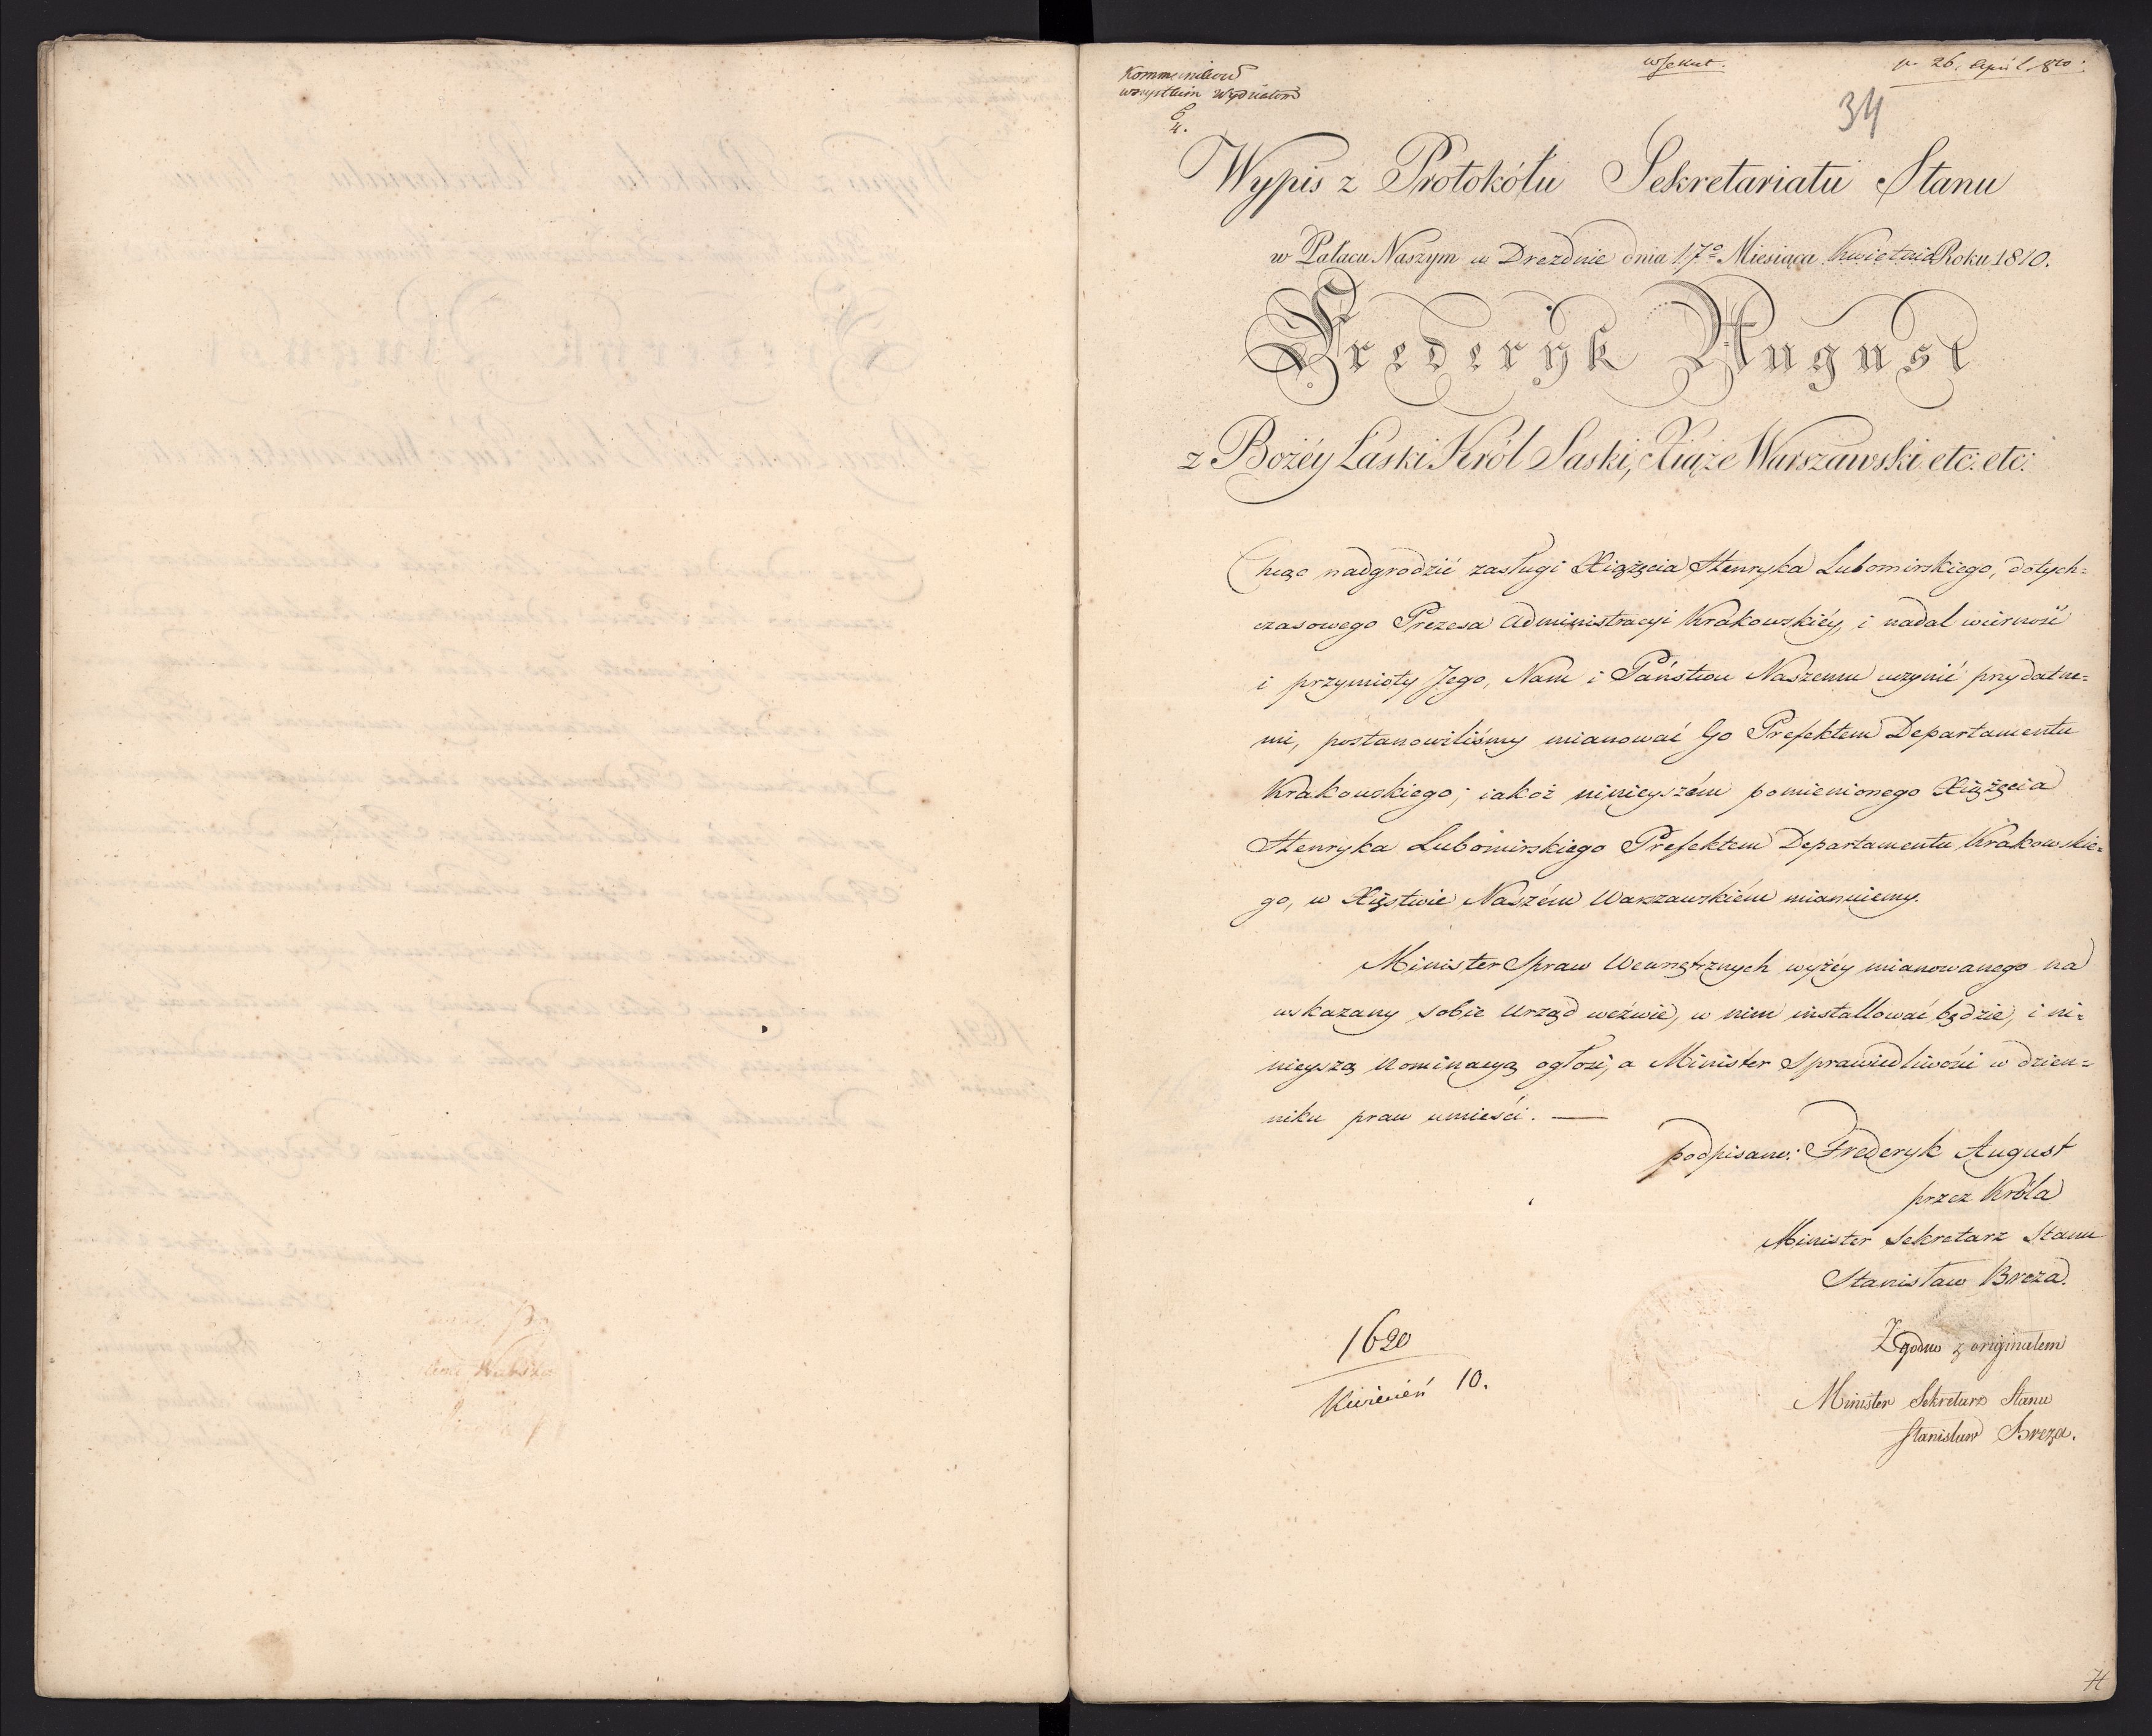 Kommunikow
wszystkim Wydziałom
26. April. 810.
34
Wypis z Protokółu Sekretariatu Stanu
w Pałacu Naszym w Dreznie dnia 17º Miesiąca Kwietnia Roku 1810.
Frederyk August
z Bożéy Łaski Król Saski, Xiąże Warszawski etc: etc:
Chcąc nadgrodzić zasługi Xiążęcia Henryka Lubomirskiego, dotych=
czasowego Prezesa Administracyi Krakowskiéy, i nadal wierność
i przymioty Jego, Nam i Państwu Naszemu uczynić przydatne=
mi, postanowiliśmy mianować Go Prefektem Departamentu
Krakowskiego; iakoż ninieyszém pomienionego Xiążęcia
Henryka Lubomirskiego Prefektem Departamentu Krakowskie=
go, w Xięstwie Naszém Warszawskiém mianuiemy.
Minister Spraw Wewnętrznych wyżéy mianowanego na
wskazany sobie Urząd weźwie, w nim installować będzie, i ni=
nieyszą Nominacyą ogłosi, a Minister Sprawiedliwości w dzien=
niku praw umieści. —
podpisano: Frederyk August
przez Króla
Minister Sekretarz Stanu
Stanisław Breza.
Zgodno z originałem
Minister Sekretarz Stanu
Stanisław Breza.
1620
Kwiecień 10.